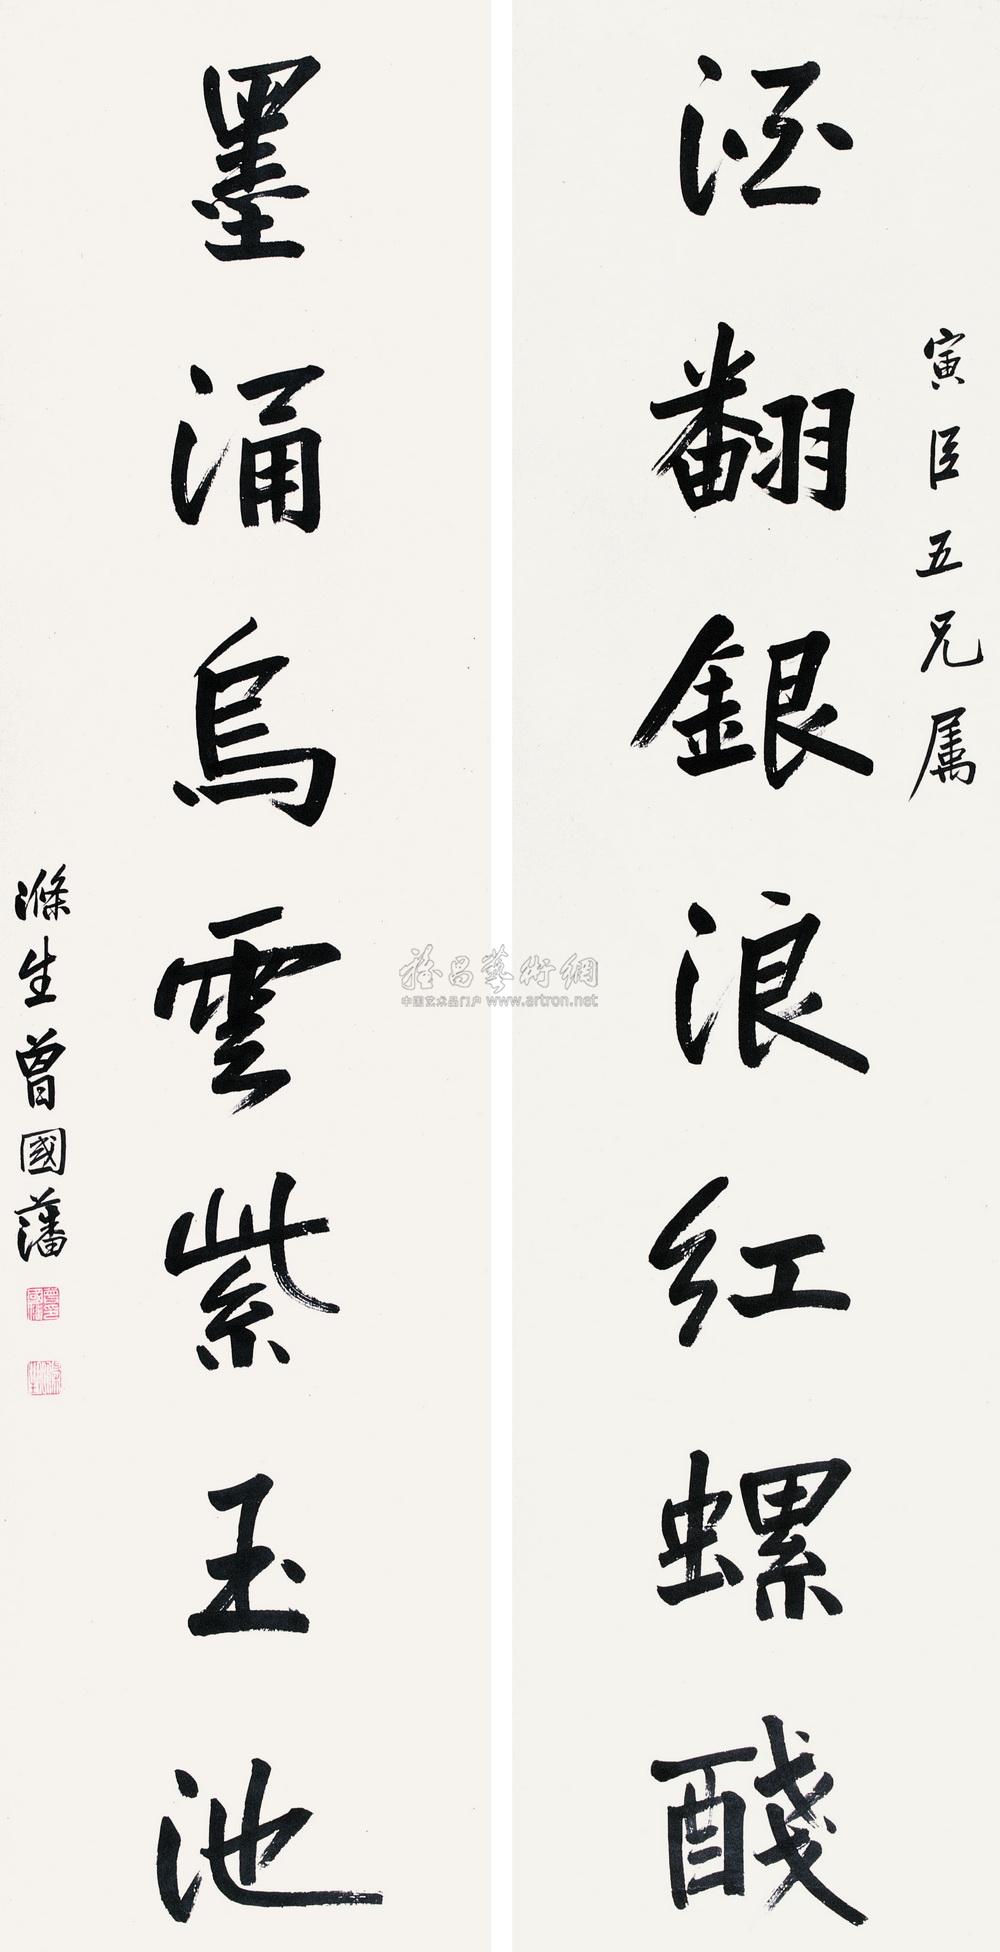 寅臣五兄属
酒翻銀浪红螺醆
墨涌烏雲紫玉池
滌生曾國藩
雅昌藝術網
中国艺术品门户 www.artron.net